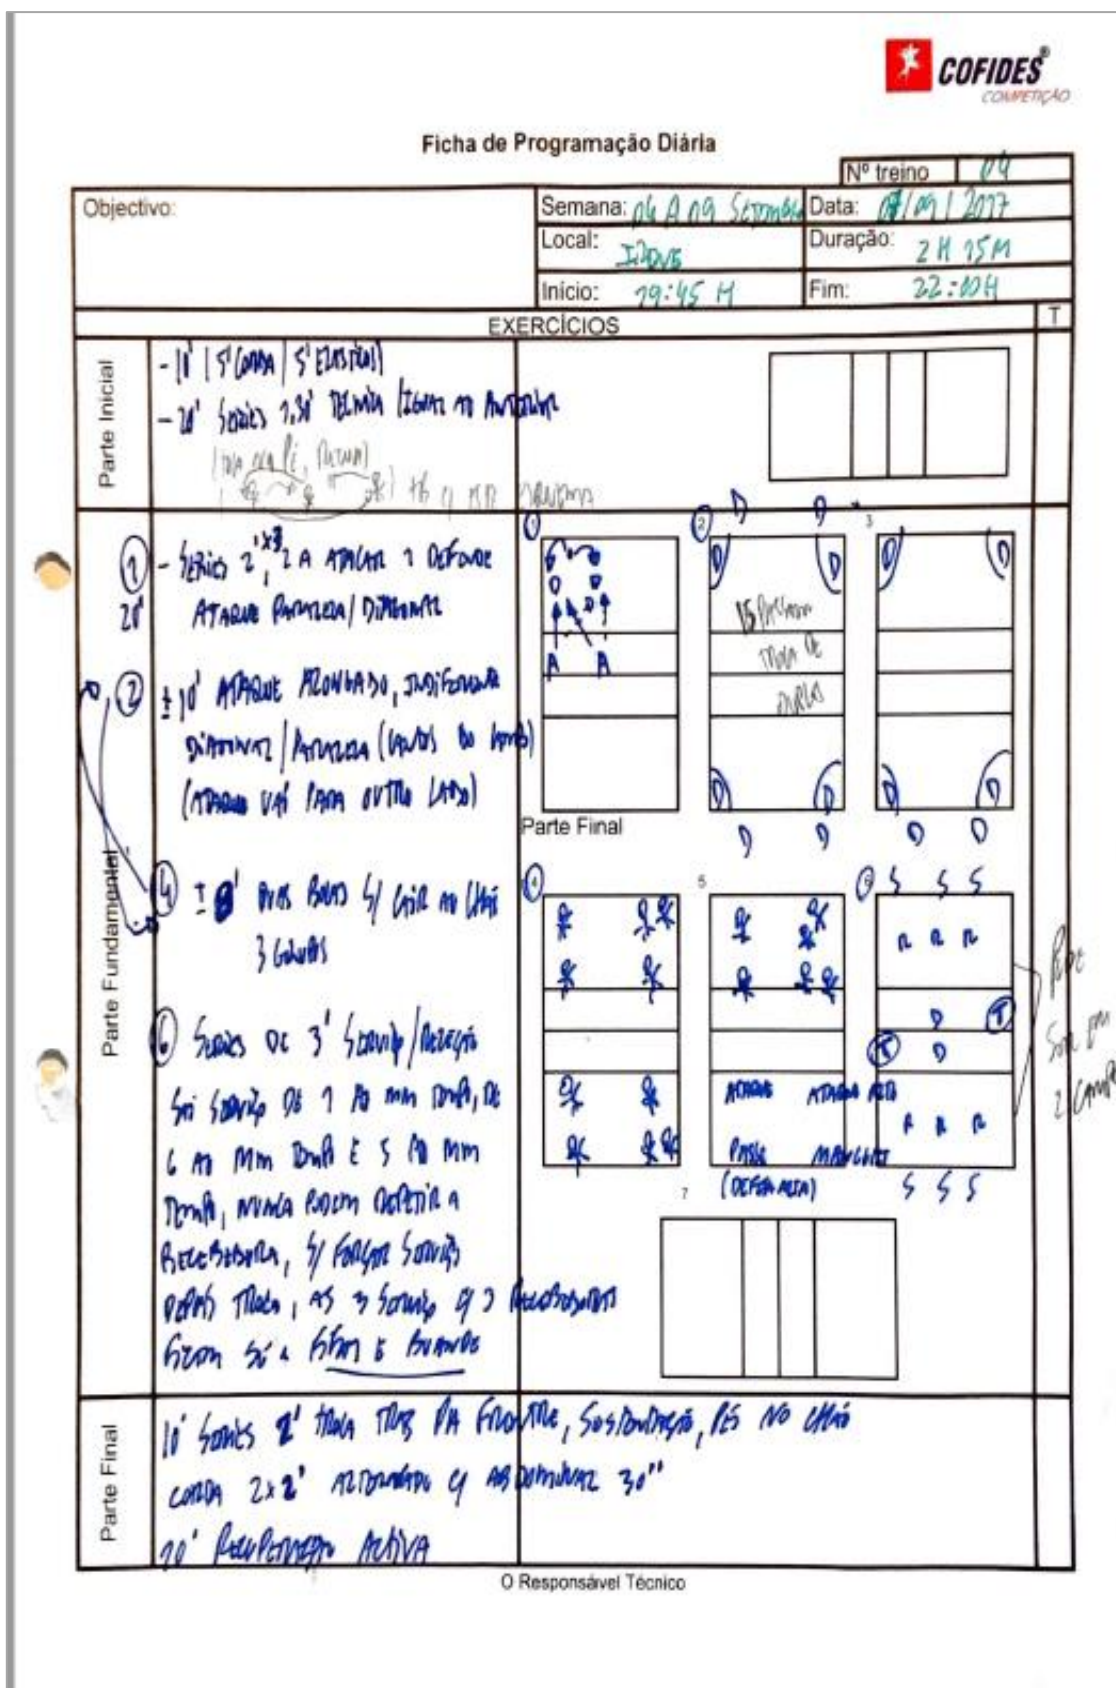 COFIDES®
COMPETIÇÃO
Ficha de Programação Diária
Nº treino 04
Objectivo:
Semana: 04 A 09 Setembro
Data: 07/09/2017
Local:
Duração: 2H 15M
Início: 19:45 H
Fim: 22:00H
EXERCÍCIOS
T
Parte Inicial
- 10' (5' CORDA / 5' ELÁSTICOS)
- 20' SERIES 1,30' TÉCNICA (IGUAL AO ANTERIOR
Parte Fundamental
1
- SERIES 2'x3, 2 A ATACAR 2 DEFENDE
20'
ATAQUE PARALELA/DIAGONAL
2
± 10' ATAQUE ALONGADO, INDIFERENTE
DIAGONAL/PARALELA (CANTOS DO CAMPO)
(ATAQUE VAI PARA OUTRO LADO)
4
± 8' DUAS BOLAS S/ CAIR AO CHÃO
3 GRUPOS
6
SERIES DE 3' SERVIÇO/RECEÇÃO
SAI SERVIÇO DE 1 AO MM TEMPO, DE
6 AO MM TEMPO E 5 AO MM
TEMPO, NUNCA PODEM REPETIR A
RECEBEDORA, S/ FORÇAR SERVIÇO
DEPOIS TROCA, AS 3 SERVIÇO C/ 3 RECEBEDORAS
FICAM SÓ A
1
2
3
D D
D D
D D
TROCA DE
A A
D D
D D
D D
D D
Parte Final
4
5
6
S S S
R R R
D T
T D
R R R
S S S
ATAQUE ATAQUE
PASSE MANCHETE
(DEFESA ALTA)
2 CAMPOS
7
Parte Final
10' SERIES 2' TROCA TRÁS PA FRENTE, SUSTENTAÇÃO, PÉS NO CHÃO
CORDA 2x2' ALTERNADO C/ ABDOMINAL 30"
10' RECUPERAÇÃO ACTIVA
O Responsável Técnico